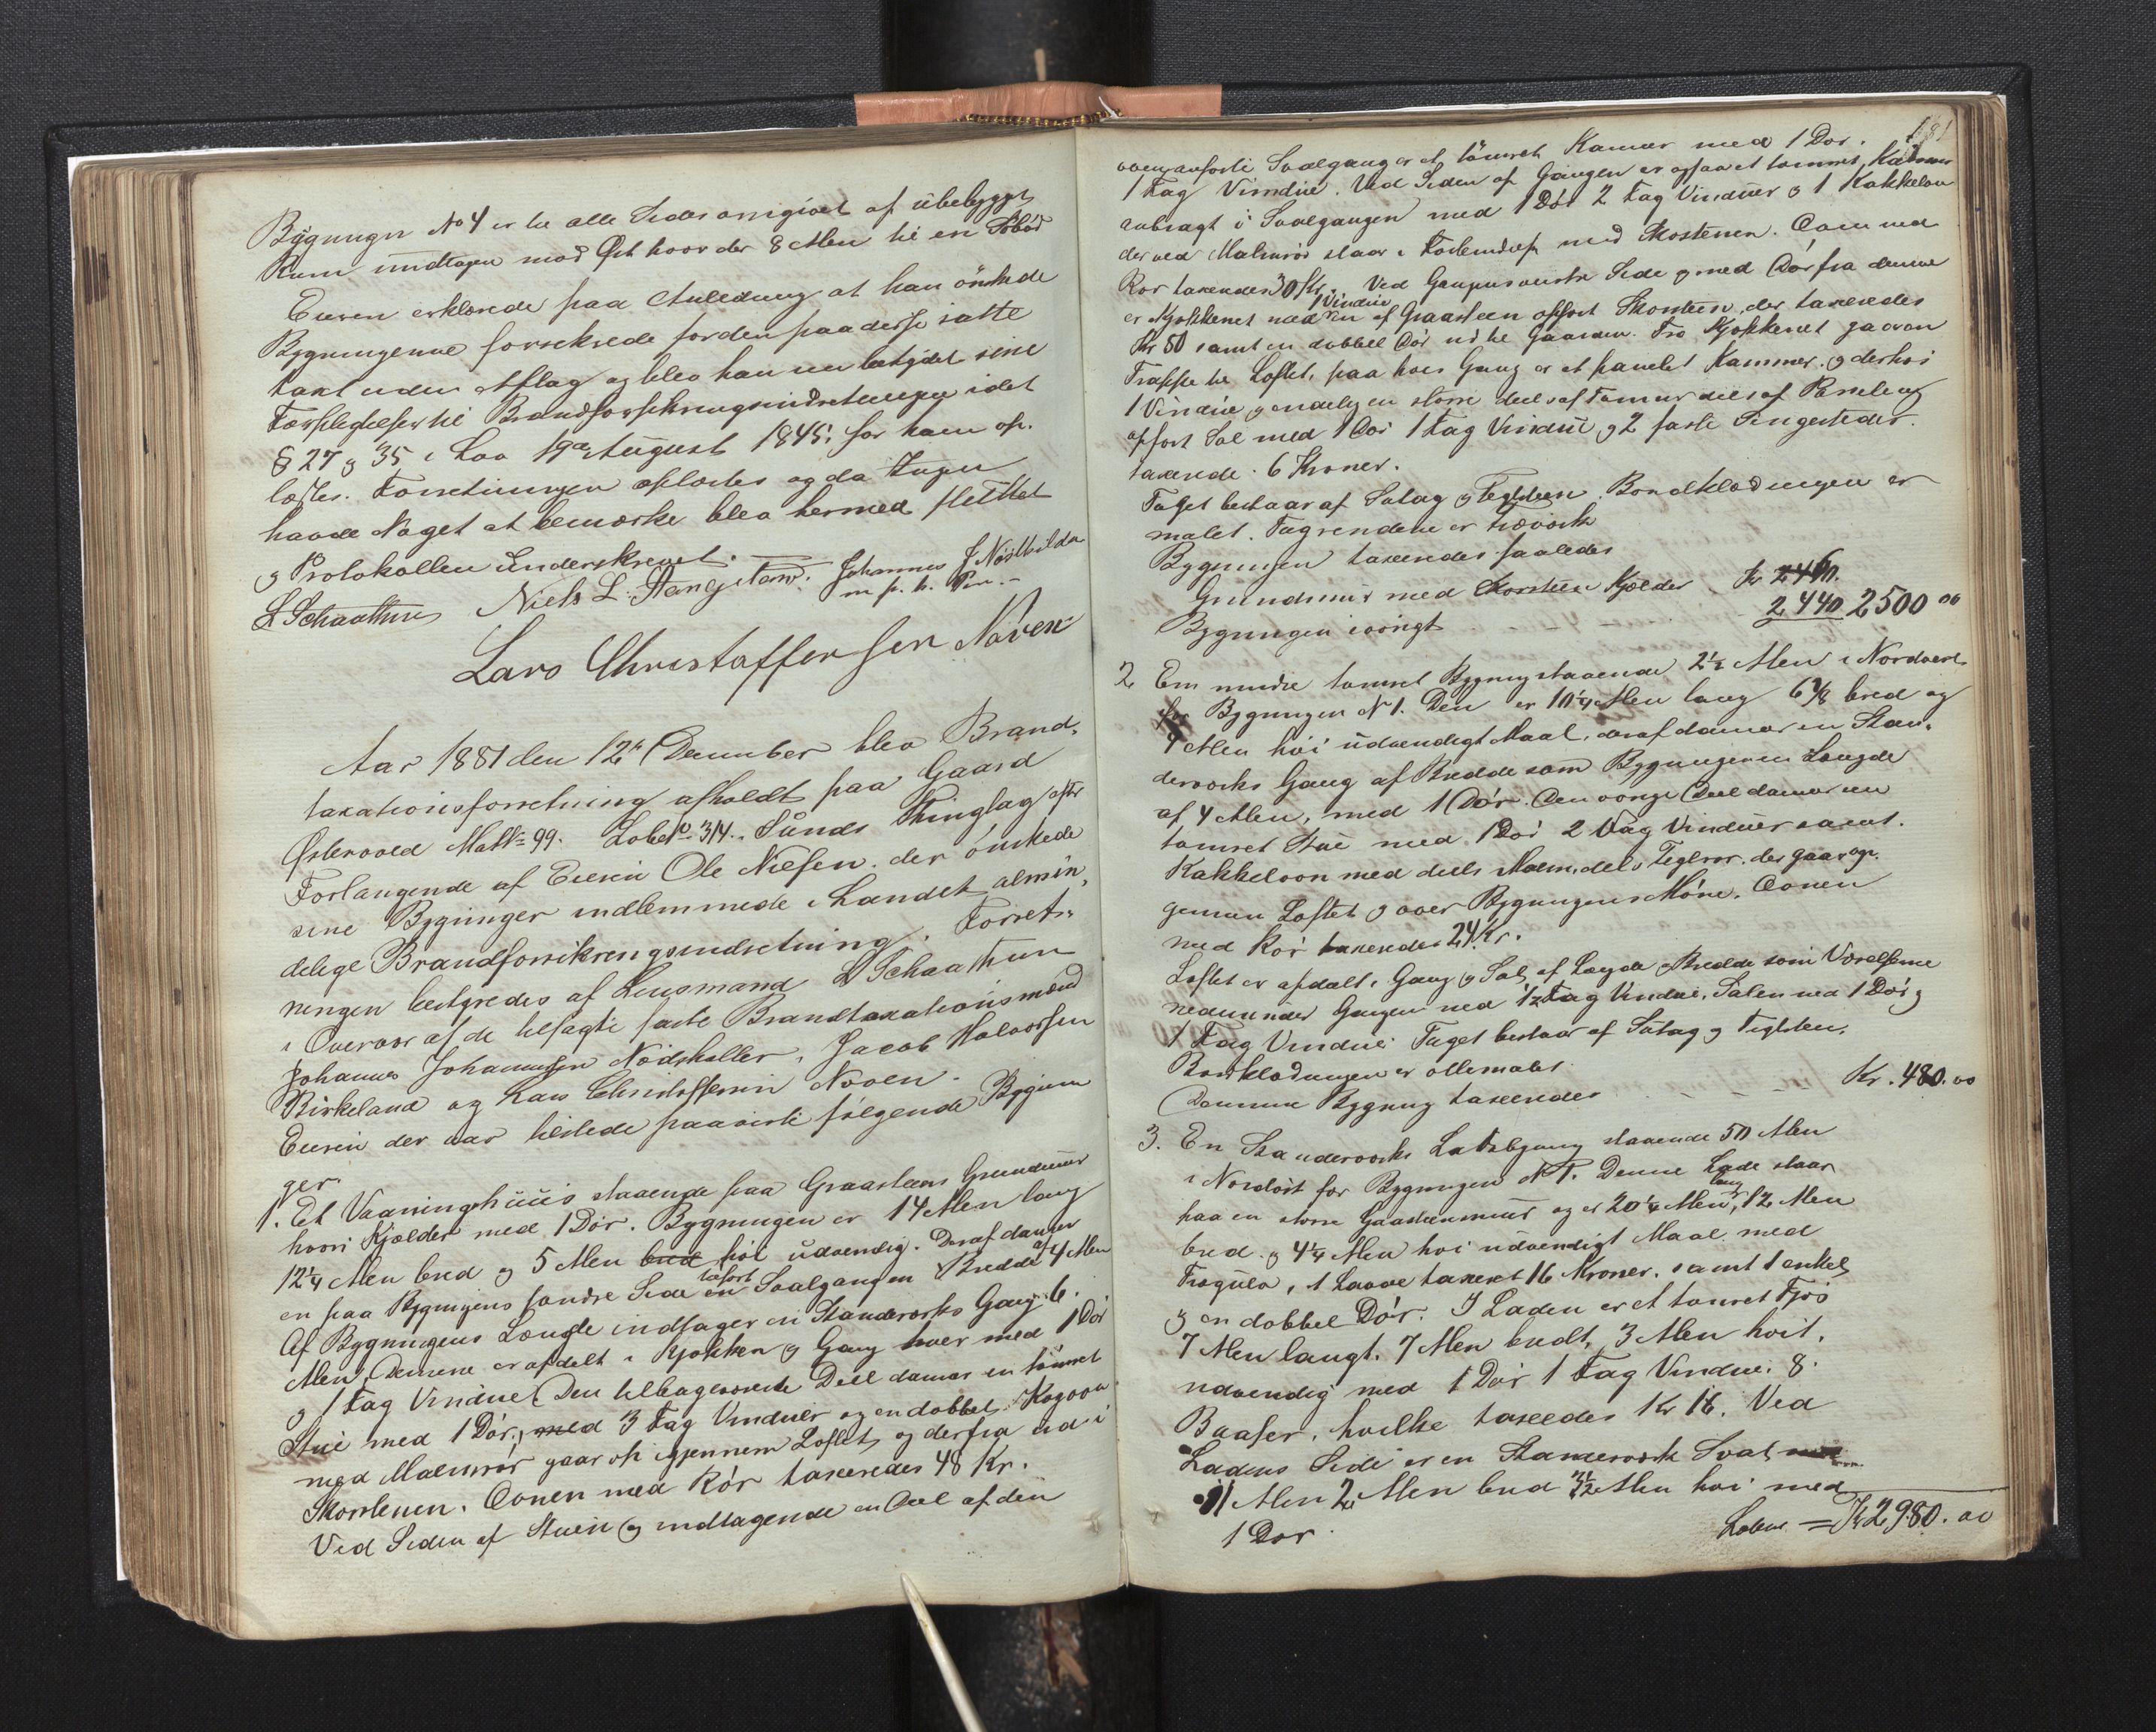 Bygningen No 4 er til alle Sider omgivet af übebygget
Rum undtagen mod Øst hvor der 8 Alen til en Søbod
Eieren erklærede paa Anledning at han önskede
Bygningerne forsikrede for den paa dem satte
taxt uden Afslag og blev han nu betydet sine
Forpligtelser til Brandforsikringsindretningen idet
§ 27 og 35 i Lov 19de August 1845 for ham op-
læstes. Forretningen oplæstes og da Ingen
havde Noget at bemærke blev hermed sluttet
og Protokollen Underskrevet.
L Schaathun Niels L. Stangeland. Johannes J Nödskilda
m. p. h. Pen.
Lars Christaffersen Nåven
Aar 1881 den 12te December blev Brand-
taxationsforretning afholdt paa Gaard
Østervold Matr= 99. Løbe No 314. Sunds Thinglag efter
Forlangende af Eieren Ole Nielsen der önskede
sine Bygninger indlemmede i Landets almin-
delige Brandforsikringsindretning. Forret-
ningen bestyredes af Lensmand L Schaathun
i Overvær af de tilsagte faste Brandtaxationsmænd
Johannes Johannessen Nødskallen, Jacob Halvorsen
Birkeland og Lars Christoffersen Noven.
Eieren der var tilstede paaviste følgende Bygnin
ger.
1. Et Vaaningshuus staaende paa Graasteens Grundmuur
hvori Kjælder med 1 Dör. Bygningen er 14 Alen lang
12 1/4 Alen bred og 5 Alen bred höi udvendig. Deraf danner
en paa Bygningens søndre Side tilført en Svalgangen Bredde af 4 Alen
Af Bygningens Længde indtager en Standerværks Gang 6.
Alen, Denne er afdelt i Kjøkken og Gang hver med 1 Dör
og 1 Fag Vindue. Den tilbageværende Deel danner en tömret
Stue med 1 Dör, med 3 Fag Vinduer og en dobbel Kogovn
med Malmrør gaar op igjennem Loftet og derfra ud i
Skorstenen. Ovnen med Rör taxeredes 48 Kr.
Ved Siden af Stuen og indtagende en Deel af den
181
ovenanførte Svalgang er et tömret Kammer med 1 Dør.
1 Fag Vindue. Ved Siden af Gangen er ogsaa et tomret Kammer
anbragt i Svalgangen med 1 Dör 2 Fag Vinduer og 1 Kakkelovn
der ved Malmrör staar i Forbindelse med Skorstenen. Ovnen med
Rør taxeredes 30 Kr. Ved Gangens venstre Side og med Dör fra denne
er Kjøkkenet med 1 Vindue en af Graasteen opført Skorsteen, der taxeredes
Kr 50 samt en dobbel Dör ud til Gaarden. Fra Kjøkkenet gaar en
Trappe til Loftet, paa hvis Gang er et panelet Kammer. og derhos
1 Vindue og endelig en større deels af Tømmer deels af Panel
opført Sal med 1 Dör 1 Fag Vindue og 2 faste Sengesteder.
taxerede 6 Kroner.
Taget bestaar af Sutag og Teglsteen. Bordklædningen er
malet. Tagrenderne er Træværk
Bygningen taxeredes saaledes
Grundmur med Skorsteen Kjælder Kr 60.
Bygningen iøvrigt 2440 2500 00
2 En mindre tomret Bygning staaende 2 1/2 Alen i Nordvest
for Bygningen No 1. Den er 10 1/4 Alen lang 6 7/8 bred og
4 Alen höi udvendigt Maal, deraf danner en Stan-
derværks Gang af Bredde som Bygningen en Længde
af 4 Alen, med 1 Dör. Den övrige Deel danner en
tomret Stue med 1 Dör 2 Fag Vinduer samt
Kakkelovn med deels Malm, dels Teglrør. der gaar op
gjennem Loftet og over Bygningens Möne. Ovnen
med Rör taxeredes 24 Kr.
Loftet er afdelt i Gang og Sal, af Længde og Bredde som Værelserne
nedenunder Gangen med 1/2 Fag Vindue, Salen med 1 Dör og
1 Fag Vindue. Taget bestaar af Sutag og Teglsten.
Bordklædningen er oliemalet.
Denne Bygning taxeredes - - Kr. 480.00
3. En Standerværks Ladebygning staaende 50 Alen
i Nordöst for Bygningen No 1. Denne Lade staar
paa en større Graasteensmuur og er 20 1/4 Alen lang, 12 Alen
bred og 4 1/4 Alen höi udvendigt Maal med
Trægulv, 1 Laave taxeret 16 Kroner, samt 1 enkel
og en dobbel Dör. I Laden er et tomret Fjøs
7 Alen langt, 7 Alen bredt, 3 Alen höit.
udvendig med 1 Dör 1 Fag Vindue. 8
Baaser, hvilke taxeredes Kr 16. Ved
Ladens Side er en Standerværk Sval
11 Alen 2 Alen bred 3 1/2 Alen höi med
1 Dør.
Latus = Kr 2980.00